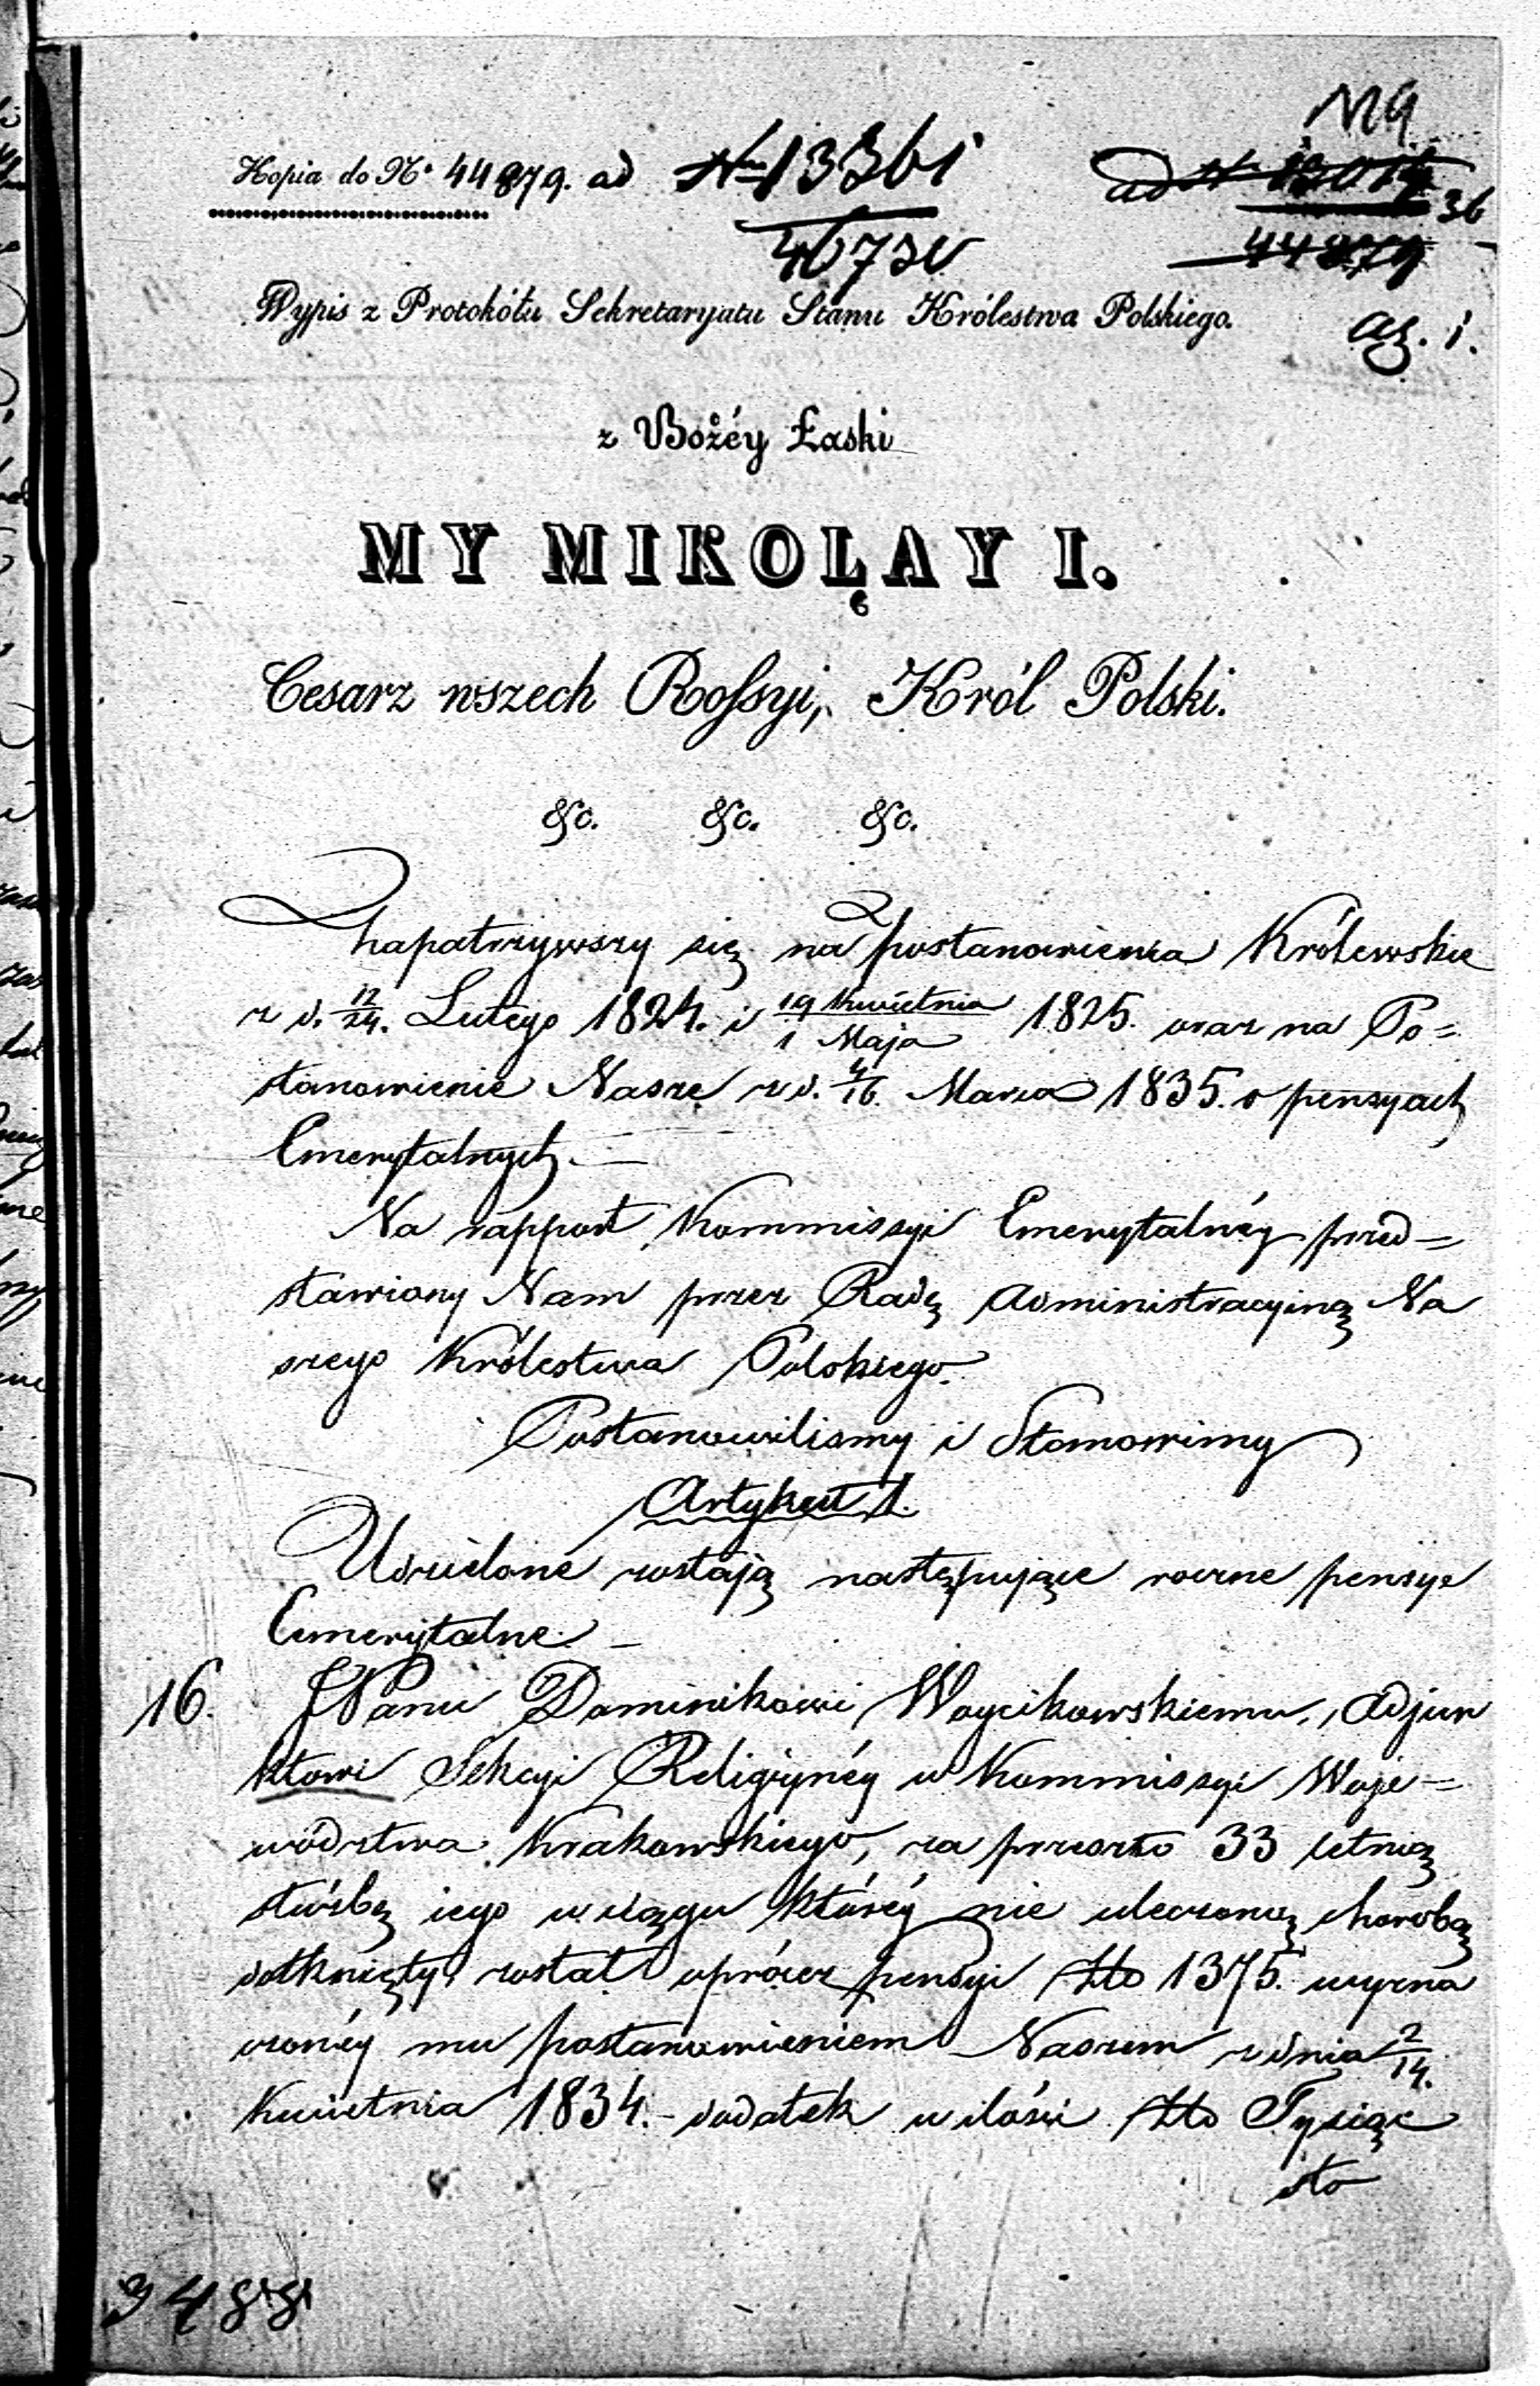 N 9
Kopia do N° 44879. ad N 13361
46730
ad N 13014
36
44879
Wypis z Protokółu Sekretaryatu Stanu Królestwa Polskiego.
az. 1.
z Bożéy Łaski
MY MIKOŁAY I.
Cesarz wszech Rossyi, Król Polski.
&c. &c. &c.
Zapatrzywszy się na Postanowienia Królewskie
z d. 12/24. Lutego 1824. i 19 Kwietnia/1 Maja 1825. oraz na Po=
stanowienie Nasze z d. 4/16. Marca 1835. o pensyach
Emerytalnych. —
Na rapport Kommissyi Emerytalnéy przed=
stawiony Nam przez Radę Administracyiną Na
szego Królestwa Polskiego.
Postanowiliśmy i Stanowimy
Artykuł 1.
Udzielone zostają następujące roczne pensye
Emerytalne. —
16. JPanu Dominikowi Woycikowskiemu, Adjun
ktowi Sekcyi Religijnéy w Kommissyi Woje=
wództwa Krakowskiego, za przeszło 33 letnią
służbę iego w ciągu któréy nie uleczoną chorobą
dotknięty został oprócz pensyi Złp 1375. wyzna
czonéy mu postanowieniem Naszem z dnia 2/14.
Kwietnia 1834. - dodatek w ilości Złp Tysiąc
sto
3488